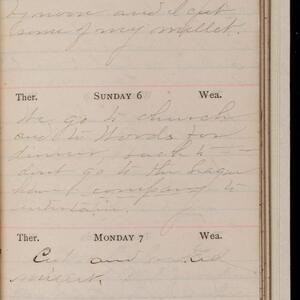 by noon and I cut
some of my millet.
Ther. SUNDAY 6 Wea.
We go to church
and to Words for
dinner,
dont go to the league
have company to
entertain.
Ther. MONDAY 7 Wea.
Cut and
millet.